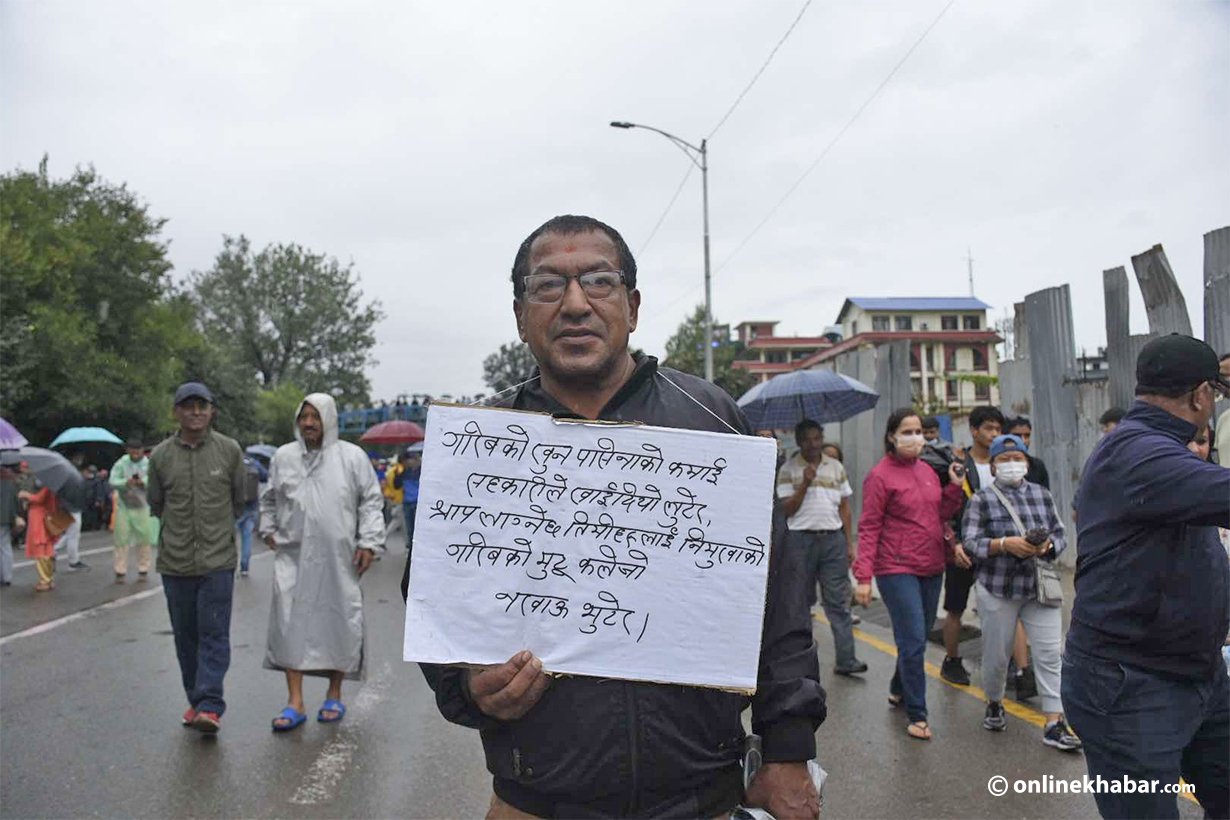 गरिबको खुन पसिनाको कमाई
सहकारीले खाईदियो लुटेर,
श्राप लाग्नेछ तिमीहरूलाई निमुखाको
गरिबको मुटू कलेजो
नखाऊ भुटेर।
© onlinekhabar.com